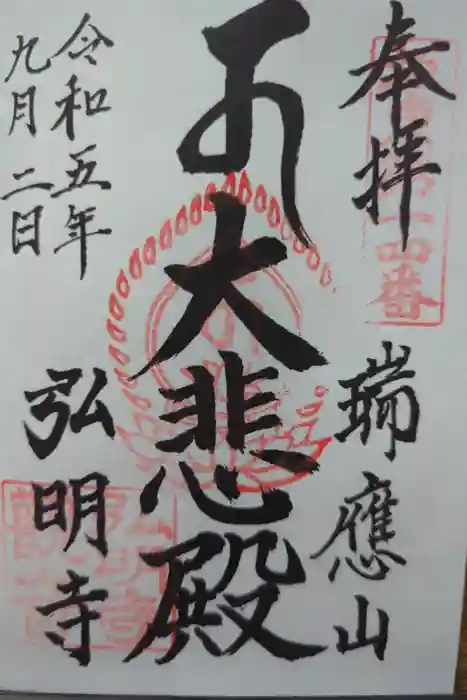 奉拝
瑞應山
大悲殿
弘明寺
令和五年
九月二日